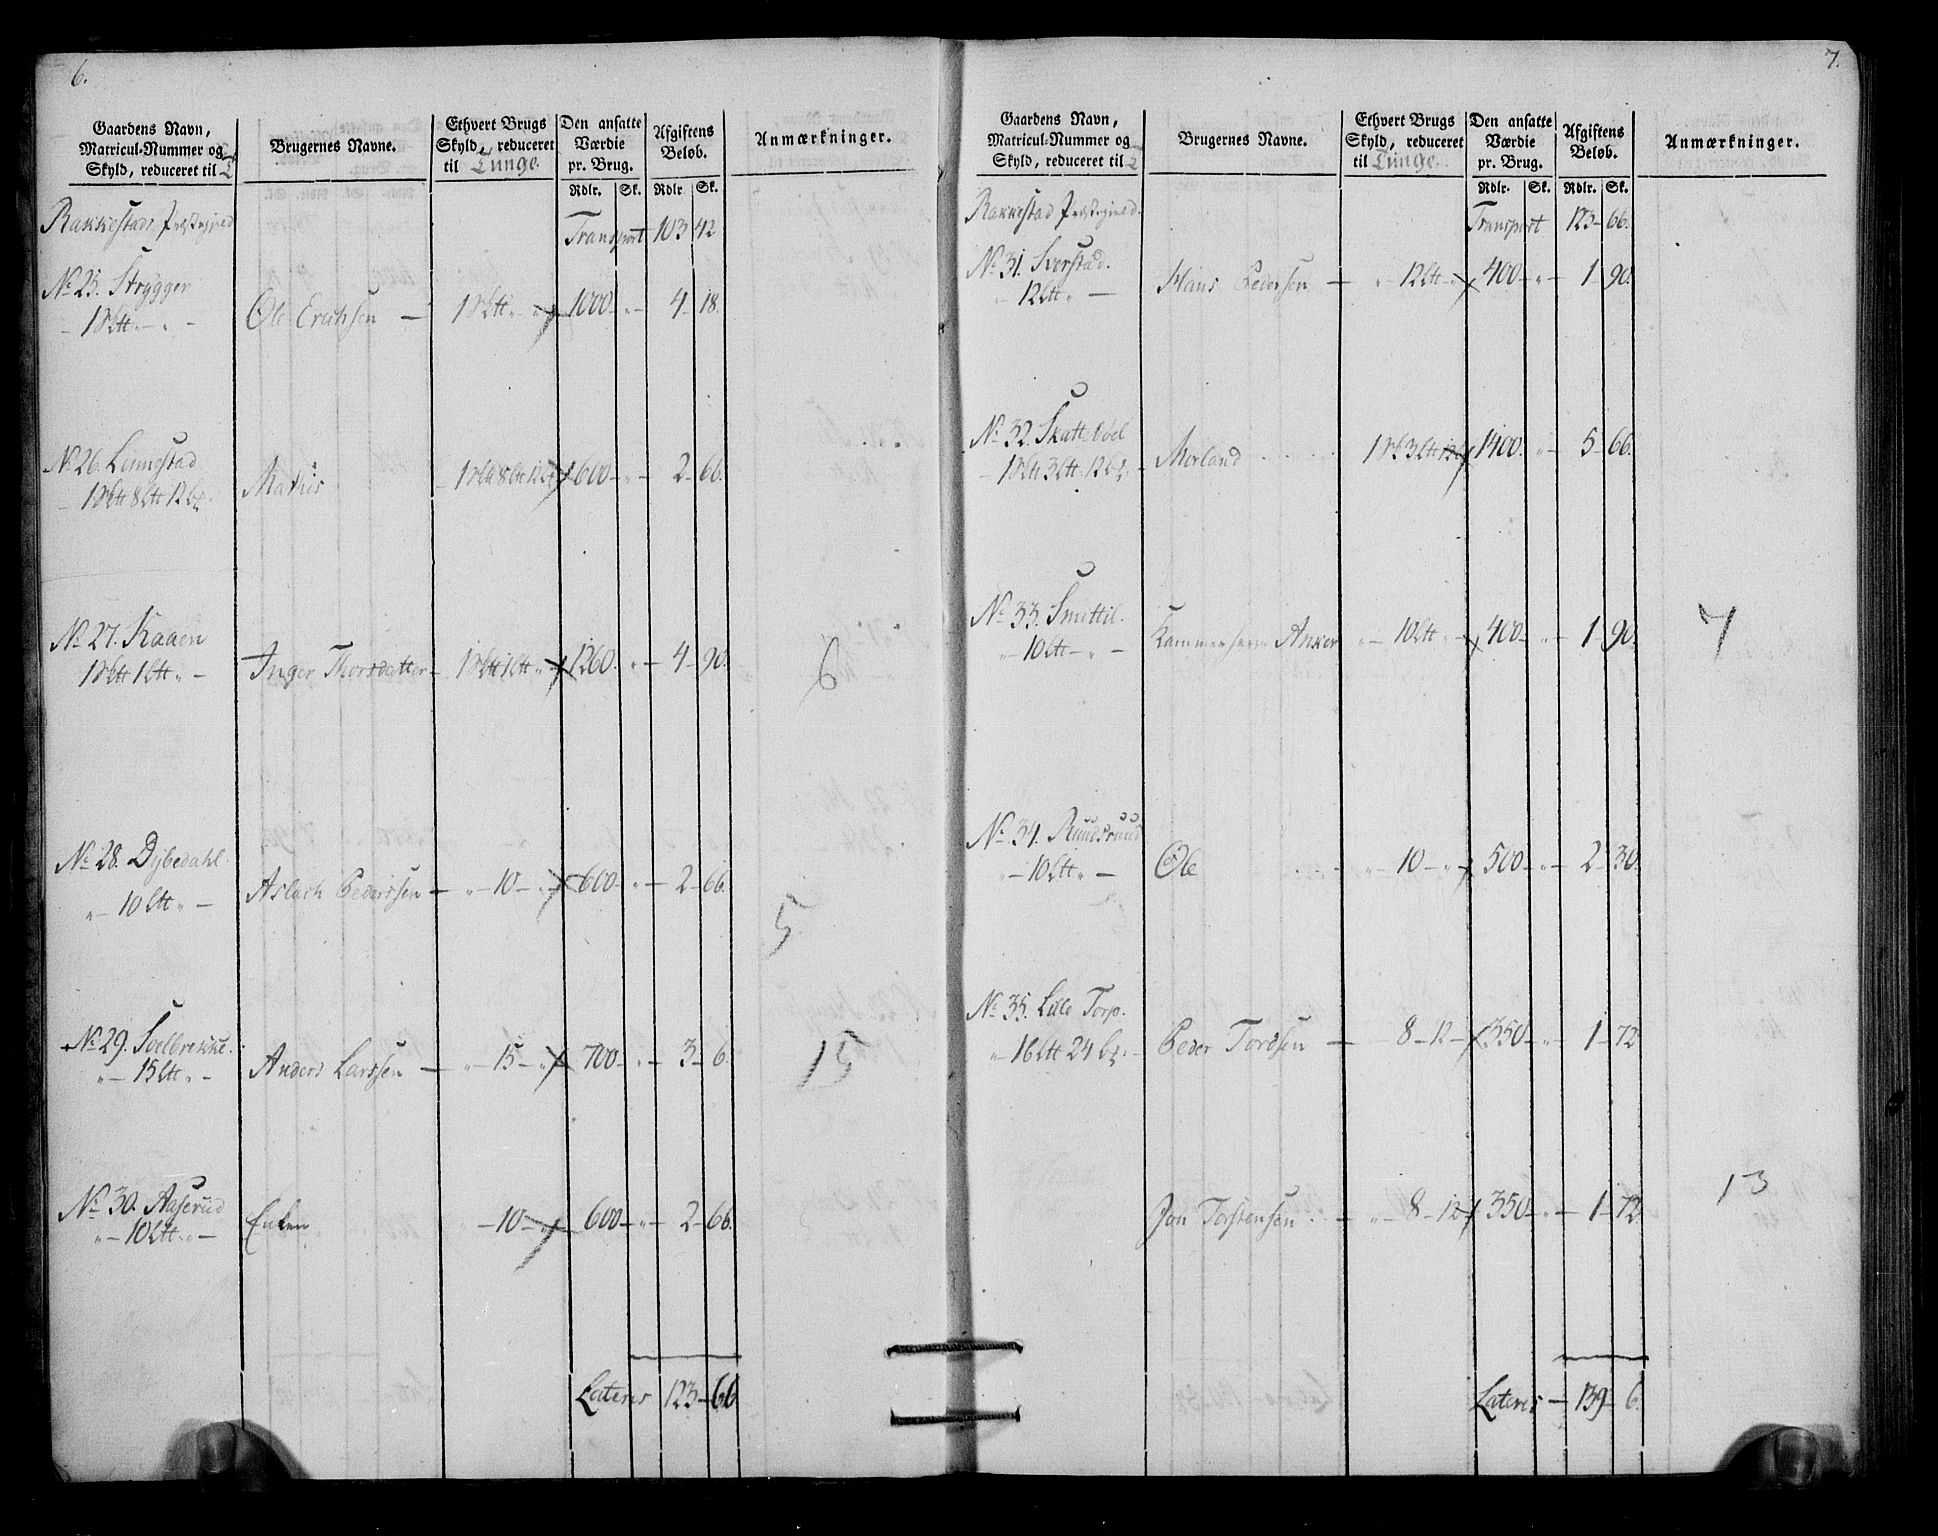 6.
Gaardens Navn, Matricul-Nummer og Skyld, reduceret til T
Brugernes Navne.
Ethvert Brugs Skyld, reduceret til Tunge.
Den ansatte Værdie pr. Brug.
Afgiftens Beløb.
Anmærkninger.
Rdlr. Sk. Rdlr Sk.
Rakkestads Præstegield Transport 103 42
No 25. Strygger
1 Sktt " - Ole Erichsen - 1 Sktt " " 1000 - " - 4 - 18.
No 26. Lennestad
1 Sktt 8 ltt 12 Mathis 1 Sktt 8 ltt 12 1600 - " - 2 - 66.
No 27. Kaaen
1 Sktt 1 ltt " - Inger Thorsdatter - 1 Sktt 1 ltt " 1260. " - 4 - 90. 6
No 28. Dybedahl.
" - 10 ltt " - Aslach Pederssen - " - 10 - " 600 - " - 2 - 66.
5
No 29. Soelbrekke.
" - 15 ltt " - Anders Larssen - " - 15 - " 700 - " - 3 - 6. 15
No 30. Aaserud
" - 10 ltt " - Enken - 10 - " 600 - " - 2 - 66.
Lateris 123 - 66
7.
Gaardens Navn, Matricul-Nummer og Skyld, reduceret til T
Brugernes Navne.
Ethvert Brugs Skyld, reduceret til Tunge.
Den ansatte Værdie pr. Brug.
Afgiftens Beløb.
Anmærkninger.
Rdlr. Sk. Rdlr. Sk.
Rakkestad Præstegield. Transport 123 - 66.
No 31. Sverstad.
" 12 ltt " - Hans Pedersen - " - 12 ltt - " 400 - " - 1 90.
No 32. Skattebøel
- 1 Sktt 3 ltt 12 Morland 1 Skt 3 ltt 12 1400. " - 5 - 66.
No 33. Smittil.
" - 10 ltt - " - Kammerherre Anker " - 10 ltt " - 400 - " - 1 - 90. 7
No 34. Ruudsruud
" - 10 ltt " - Ole " - 10 - " 500 - " - 2 - 30.
No 35. Lille Torp.
" 16 ltt 24 Peder Tordsen - 8 - 12 - 350 - " - 1 - 72
Jon Torstensen. - " - 8 - 12 350 - " - 1 - 72. 13
Lateris - 139 - 6.